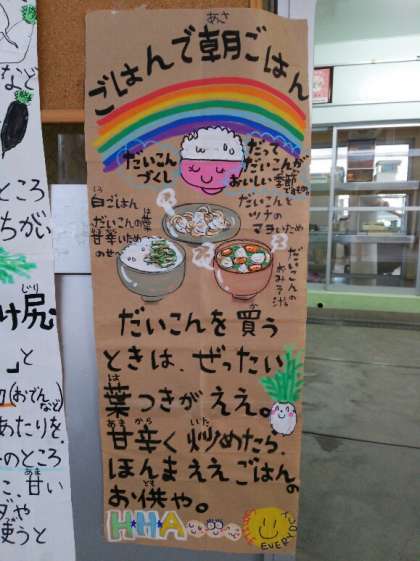 ごはんで朝ごはん
あさ
だいこん
づくし
だって
だいこんが
おいしい季節
ですもの。
白ごはん
しろ
だいこんの葉
は
甘辛いため
のせ〜
だいこんと
ツナの
マヨいため
だいこんの
おみそ汁。
だいこんを買う
か
ときは、ぜったい
葉つきがええ。
は
甘辛く炒めたら、
あま から いた
ほんまええごはんの
お供や。
とも
H・H・A
EVERYDAY
など
ところ
ちがい
け尻
じり
」と
(おでんなど)
あたりを
のところ
こ、甘い
あま
ダや
使うと